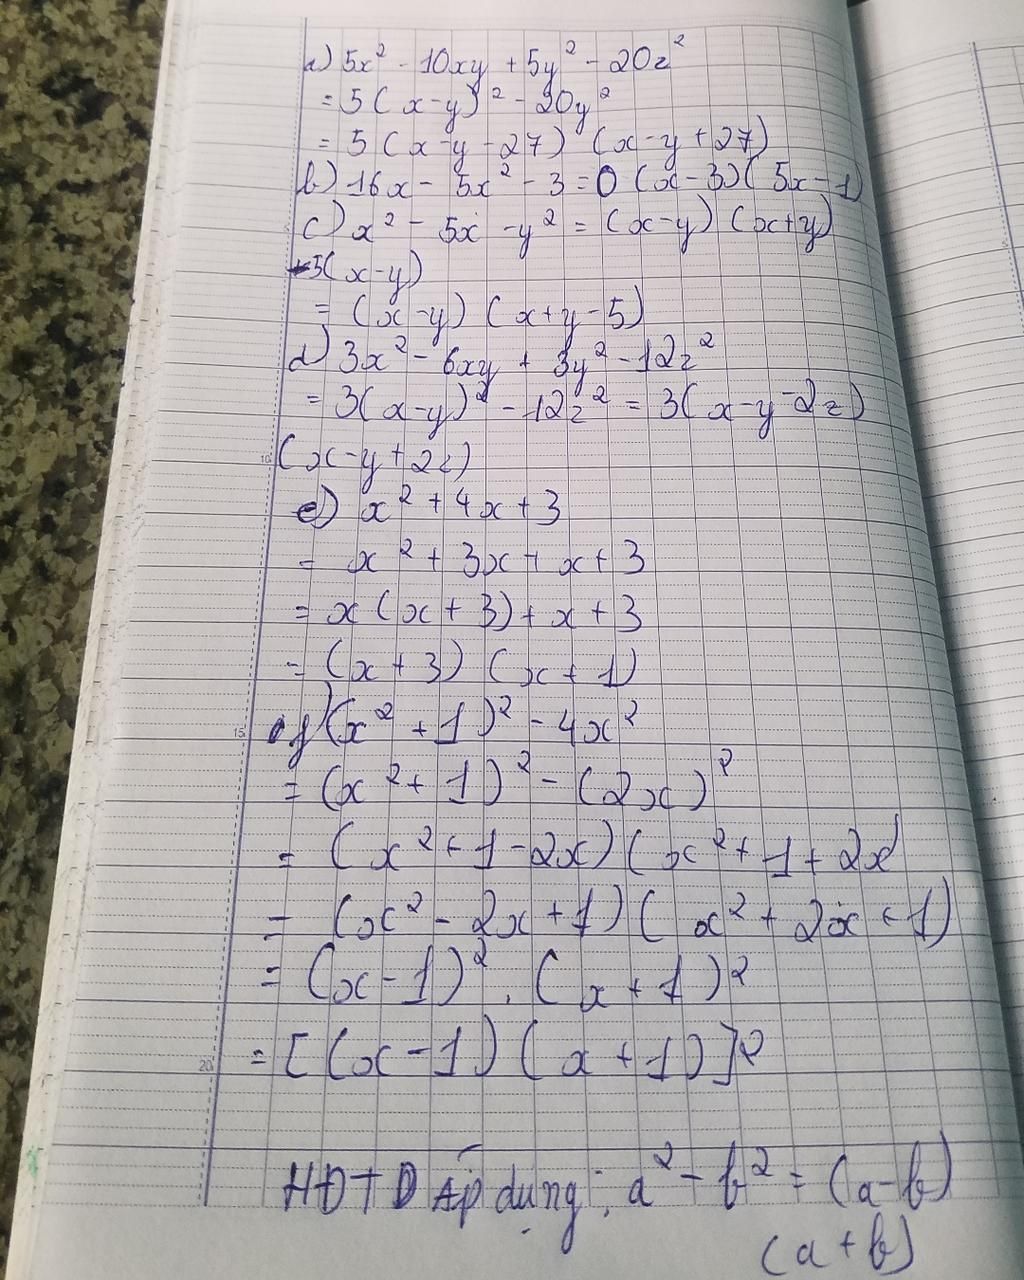 a) 5x² - 10xy + 5y² - 20z²
= 5(x-y)² - 20y²
= 5(x-y-27)(x-y+27)
b) 16x - 5x² - 3 = 0 (x-3)(5x-1)
c) x² - 5x - y² = (x-y)(x+y)
-5(x-y)
= (x-y)(x+y-5)
d) 3x² - 6xy + 3y² - 12z²
= 3(x-y)² - 12z² = 3(x-y-2z)
(x-y+2z)
e) x² + 4x + 3
= x² + 3x + x + 3
= x(x+3) + x + 3
= (x+3)(x+1)
f) (x²+1)² - 4x²
= (x²+1)² - (2x)²
= (x²+1-2x)(x²+1+2x)
= (x²-2x+1)(x²+2x+1)
= (x-1)² . (x+1)²
= [(x-1)(x+1)]²
HĐTD Áp dụng: a² - b² = (a-b)
(a+b)